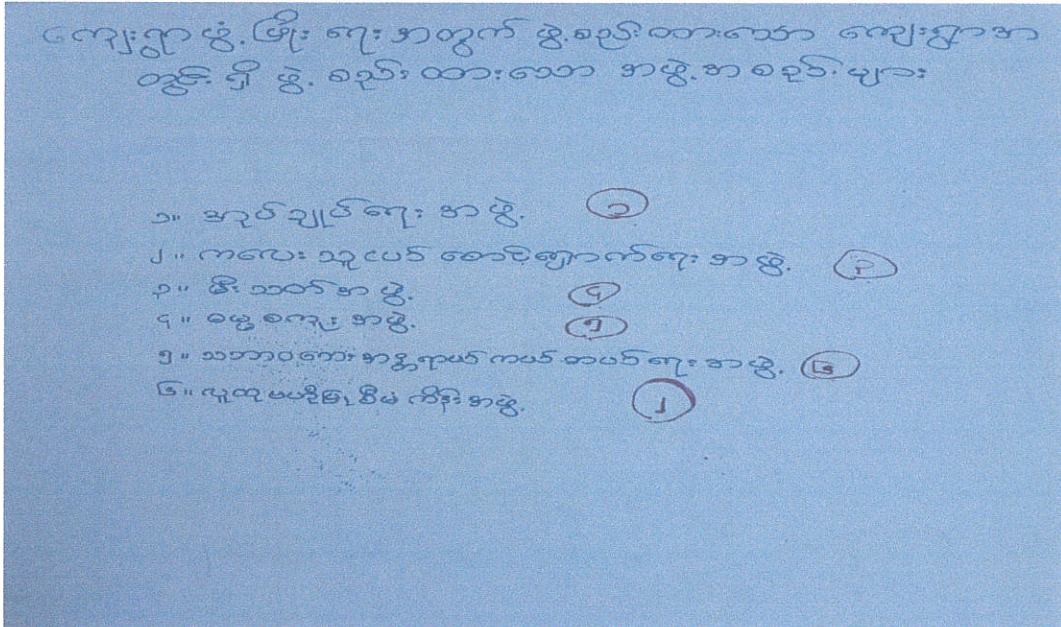 ကျေးရွာဖွံ့ဖြိုးရေးအတွက် ဖွဲ့စည်းထားသော ကျေးရွာအ
တွင်းရှိ ဖွဲ့စည်းထားသော အဖွဲ့အစည်းများ
၁။ အုပ်ချုပ်ရေးအဖွဲ့ ၁
၂။ ကလေးသူငယ် စောင့်ရှောက်ရေးအဖွဲ့ ၃
၃။ မီးသတ်အဖွဲ့ ၄
၄။ ဓမ္မစကူးအဖွဲ့ ၅
၅။ သဘာဝဘေးအန္တရာယ်ကယ်ဆယ်ရေးအဖွဲ့ ၆
၆။ လူထုဗဟိုပြုစီမံကိန်းအဖွဲ့ ၂